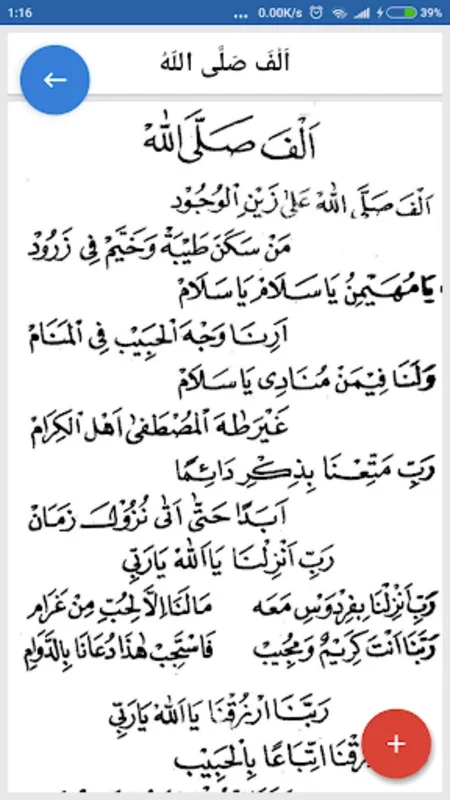 1:16 ... 0.00K/s 39%
اَلْفَ صَلَّى اللهْ
اَلْفَ صَلَّى اللهْ
اَلْفَ صَلَّى اللهْ عَلَى زَيْنِ الْوُجُوْدِ
مَنْ سَكَنَ طَيْبَةْ وَخَيَّمْ فِي زَرُوْدْ
يَا مُهَيْمِنُ يَا سَلَامْ يَا سَلَامْ
اَرِنَا وَجْهَ الْحَبِيْبِ فِي الْمَنَامْ
وَلَنَا فِيْمَنْ مُنَادِى يَا سَلَامْ
غَيْرَ طٰهَ الْمُصْطَفَى اَهْلِ الْكِرَامْ
رَبِّ مَتِّعْنَا بِذِكْرِ دَائِمًا
اَبَدًا حَتَّى اَتَى نُزُوْلَ زَمَانْ
رَبِّ اَنْزِلْنَا يَا اَللهْ يَارَبِّي
رَبِّ اَنْزِلْنَا بِفِرْدَوْسِ مَعَه مَالَنَا اِلَّا لِحُبِّ مِنْ غَرَامِ
رَبَّنَا اَنْتَ كَرِيْمٌ وَمُجِيْبْ فَاسْتَجِبْ هٰذَا دُعَانَا بِالدَّوَامِ
رَبَّنَا ارْزُقْنَا يَا اَللهْ يَارَبِّي
زُقْنَا اتِّبَاعًا بِالْحَبِيْبِ